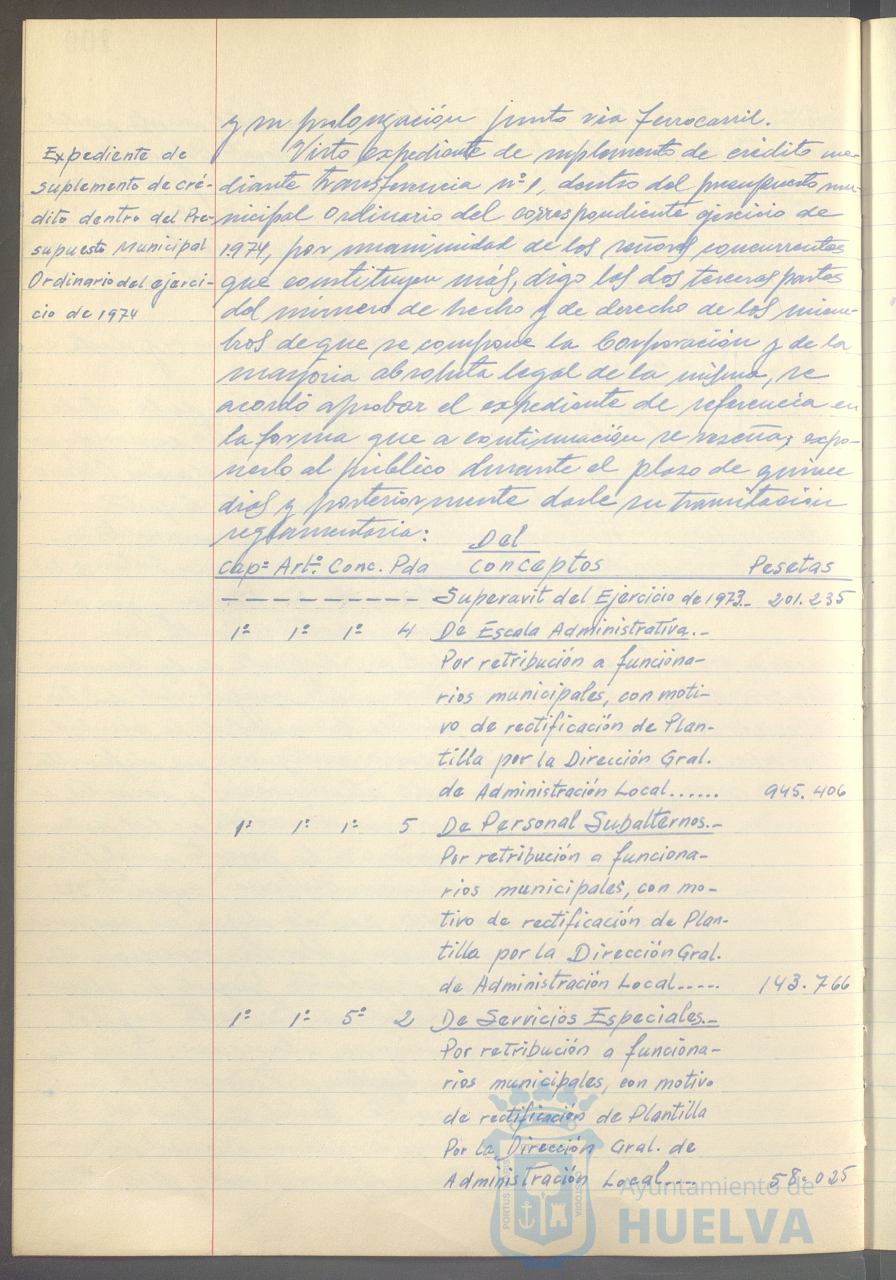 y su prolongación junto via ferrocarril.
Expediente de
suplemento de cré-
dito dentro del Pre-
supuesto Municipal
Ordinario del ejerci-
cio de 1974
Visto expediente de suplemento de crédito me-
diante transferencia nº 1, dentro del presupuesto mu-
nicipal Ordinario del correspondiente ejercicio de
1.974, por unanimidad de los señores concurrentes
que constituyen más, digo las dos terceras partes
del número de hecho y de derecho de los miem-
bros de que se compone la Corporación y de la
mayoria absoluta legal de la misma, se
acordó aprobar el expediente de referencia en
la forma que a continuación se reseña; expo-
nerlo al público durante el plazo de quince
dias y posteriormente darle su tramitación
reglamentaria:
Del
Capº Artº. Conc. Pda conceptos Pesetas
— — — — — — — — — — Superavit del Ejercicio de 1973.- 201.235
1º 1º 1º 4 De Escala Administrativa.-
Por retribución a funciona-
rios municipales, con moti-
vo de rectificación de Plan-
tilla por la Dirección Gral.
de Administración Local...... 945.406
1º 1º 1º 5 De Personal Subalternos.-
Por retribución a funciona-
rios municipales, con mo-
tivo de rectificación de Plan-
tilla por la Dirección Gral.
de Administración Local..... 143.766
1º 1º 5º 2 De Servicios Especiales.-
Por retribución a funciona-
rios municipales, con motivo
de rectificación de Plantilla
Por la Dirección Gral. de
Administración Local.... 58.025
PORTUS
CUSTODIA
Ayuntamiento de
HUELVA